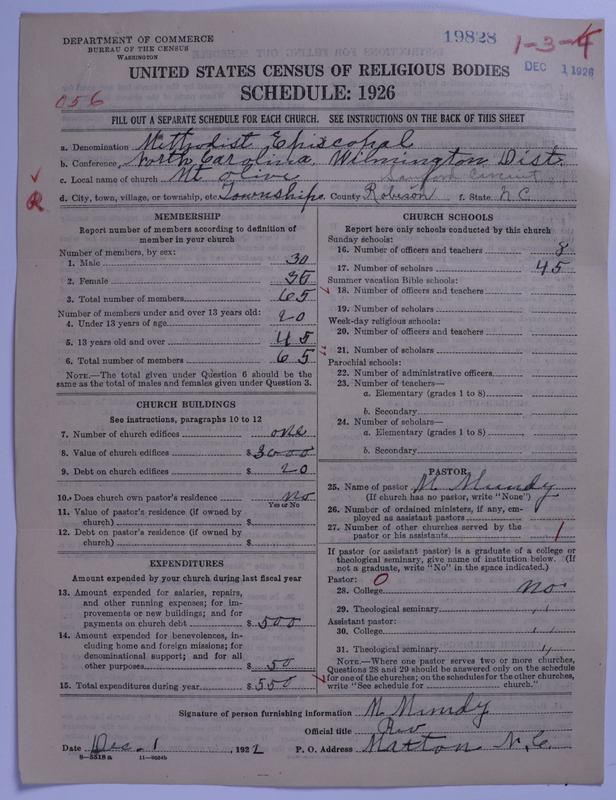 DEPARTMENT OF COMMERCE
BUREAU OF THE CENSUS
WASHINGTON
19828
1-3-4
DEC 1 1926
UNITED STATES CENSUS OF RELIGIOUS BODIES
SCHEDULE: 1926
056
FILL OUT A SEPARATE SCHEDULE FOR EACH CHURCH. SEE INSTRUCTIONS ON THE BACK OF THIS SHEET
a. Denomination Methodist Episcopal
b. Conference North Carolina, Wilmington Dist.
c. Local name of church Mt Olive Circuit
d. City, town, village, or township, etc Township e. County Robison f. State N.C.
MEMBERSHIP
Report number of members according to definition of
member in your church
Number of members, by sex:
1. Male 30
2. Female 35
3. Total number of members 65
Number of members under and over 13 years old:
4. Under 13 years of age 20
5. 13 years old and over 45
6. Total number of members 65
NOTE.—The total given under Question 6 should be the
same as the total of males and females given under Question 3.
CHURCH BUILDINGS
See instructions, paragraphs 10 to 12
7. Number of church edifices one
8. Value of church edifices $ 3000
9. Debt on church edifices $ 20
10. Does church own pastor's residence No
Yes or No
11. Value of pastor's residence (if owned by
church) $
12. Debt on pastor's residence (if owned by
church) $
EXPENDITURES
Amount expended by your church during last fiscal year
13. Amount expended for salaries, repairs,
and other running expenses; for im-
provements or new buildings; and for
payments on church debt $ 500
14. Amount expended for benevolences, in-
cluding home and foreign missions; for
denominational support; and for all
other purposes $ 50
15. Total expenditures during year $ 550
CHURCH SCHOOLS
Report here only schools conducted by this church
Sunday schools:
16. Number of officers and teachers 8
17. Number of scholars 45
Summer vacation Bible schools:
18. Number of officers and teachers
19. Number of scholars
Week-day religious schools:
20. Number of officers and teachers
21. Number of scholars
Parochial schools:
22. Number of administrative officers
23. Number of teachers—
a. Elementary (grades 1 to 8)
b. Secondary
24. Number of scholars—
a. Elementary (grades 1 to 8)
b. Secondary
PASTOR
25. Name of pastor M. Mundy
(If church has no pastor, write "None")
26. Number of ordained ministers, if any, em-
ployed as assistant pastors
27. Number of other churches served by the
pastor or his assistants 1
If pastor (or assistant pastor) is a graduate of a college or
theological seminary, give name of institution below. (If
not a graduate, write "No" in the space indicated.)
Pastor: O
28. College No
29. Theological seminary "
Assistant pastor:
30. College "
31. Theological seminary "
NOTE.—Where one pastor serves two or more churches,
Questions 28 and 29 should be answered only on the schedule
for one of the churches; on the schedules for the other churches,
write "See schedule for church."
Signature of person furnishing information M. Mundy
Official title Rev
Date Dec. 1, 192 P. O. Address Maxton N.C.
8-5518 a 11-9034b